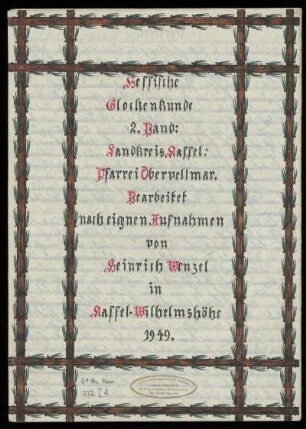 Hessische
Glockenkunde
2. Band:
Landkreis Kassel:
Pfarrei Obervellmar.
Bearbeitet
nach eignen Aufnahmen
von
Heinrich Wenzel
in
Kassel-Wilhelmshöhe
1949.
4° Ms. Hass.